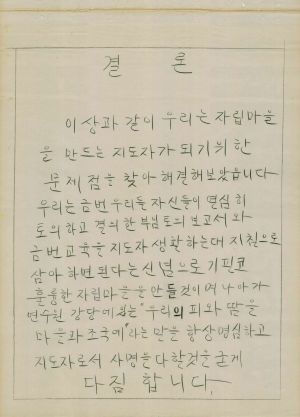 결 론
이상과 같이 우리는 자립마을
을 만드는 지도자가 되기위한
문제점을 찾아 해결해보았습니다
우리는 금번 우리들 자신들이 열심히
토의하고 결의한 분임토의 보고서와
금번교육을 지도자 생활하는대 지침으로
삼아 하면된다는 신념으로 기필코
훌륭한 자립마을을 만들것이며 나아가
연수원 강당에 있는 "우리의 피와 땀을
마을과 조국에"라는 말을 항상명심하고
지도자로서 사명을 다할것을 굳게
다짐합니다.